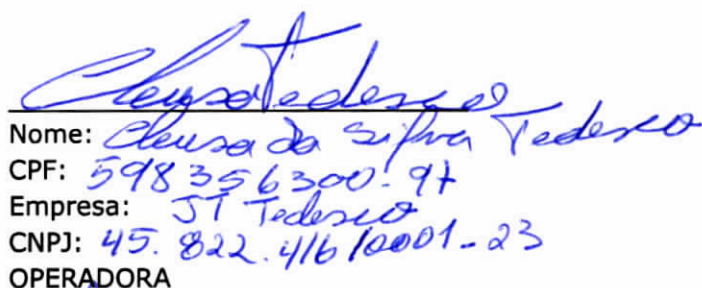 Cleusa Tedesco
Nome: Cleusa da Silva Tedesco
CPF: 598356300-97
Empresa: JT Tedesco
CNPJ: 45.822.416/0001-23
OPERADORA